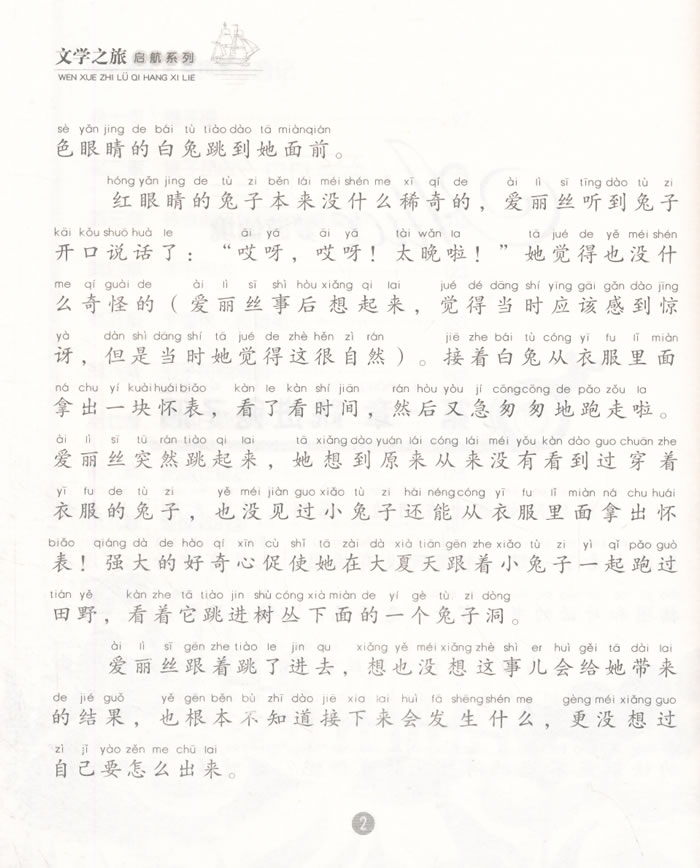 文学之旅 启航系列
WEN XUE ZHI LÜ QI HANG XI LIE
sè yǎn jing de bái tù tiào dào tā miàn qián
色眼睛的白兔跳到她面前。
hóng yǎn jing de tù zi běn lái méi shén me xī qí de ài lì sī tīng dào tù zi
红眼睛的兔子本来没什么稀奇的，爱丽丝听到兔子
kāi kǒu shuō huà le āi yā āi yā tài wǎn la tā jué de yě méi shén
开口说话了：“哎呀，哎呀！太晚啦！”她觉得也没什
me qí guài de ài lì sī shì hòu xiǎng qi lai jué dé dāng shí yīng gāi gǎn dào jīng
么奇怪的（爱丽丝事后想起来，觉得当时应该感到惊
yà dàn shì dāng shí tā jué de zhè hěn zì rán jiē zhe bái tù cóng yī fu lǐ miàn
讶，但是当时她觉得这很自然）。接着白兔从衣服里面
ná chu yí kuài huái biǎo kàn le kàn shí jiān rán hòu yòu jí cōng cōng de pǎo zǒu la
拿出一块怀表，看了看时间，然后又急匆匆地跑走啦。
ài lì sī tū rán tiào qi lai tā xiǎng dào yuán lái cóng lái méi yǒu kàn dào guo chuān zhe
爱丽丝突然跳起来，她想到原来从来没有看到过穿着
yī fu de tù zi yě méi jiàn guo xiǎo tù zi hái néng cóng yī fu lǐ miàn ná chu huái
衣服的兔子，也没见过小兔子还能从衣服里面拿出怀
biǎo qiáng dà de hào qí xīn cù shǐ tā zài dà xià tiān gēn zhe xiǎo tù zi yì qǐ pǎo guò
表！强大的好奇心促使她在大夏天跟着小兔子一起跑过
tián yě kàn zhe tā tiào jìn shù cóng xià miàn de yí gè tù zi dòng
田野，看着它跳进树丛下面的一个兔子洞。
ài lì sī gēn zhe tiào le jin qu xiǎng yě méi xiǎng zhè shì er huì gěi tā dài lai
爱丽丝跟着跳了进去，想也没想这事儿会给她带来
de jié guǒ yě gēn běn bù zhī dào jiē xia lai huì fā shēng shén me gèng méi xiǎng guo
的结果，也根本不知道接下来会发生什么，更没想过
zì jǐ yào zěn me chū lai
自己要怎么出来。
2